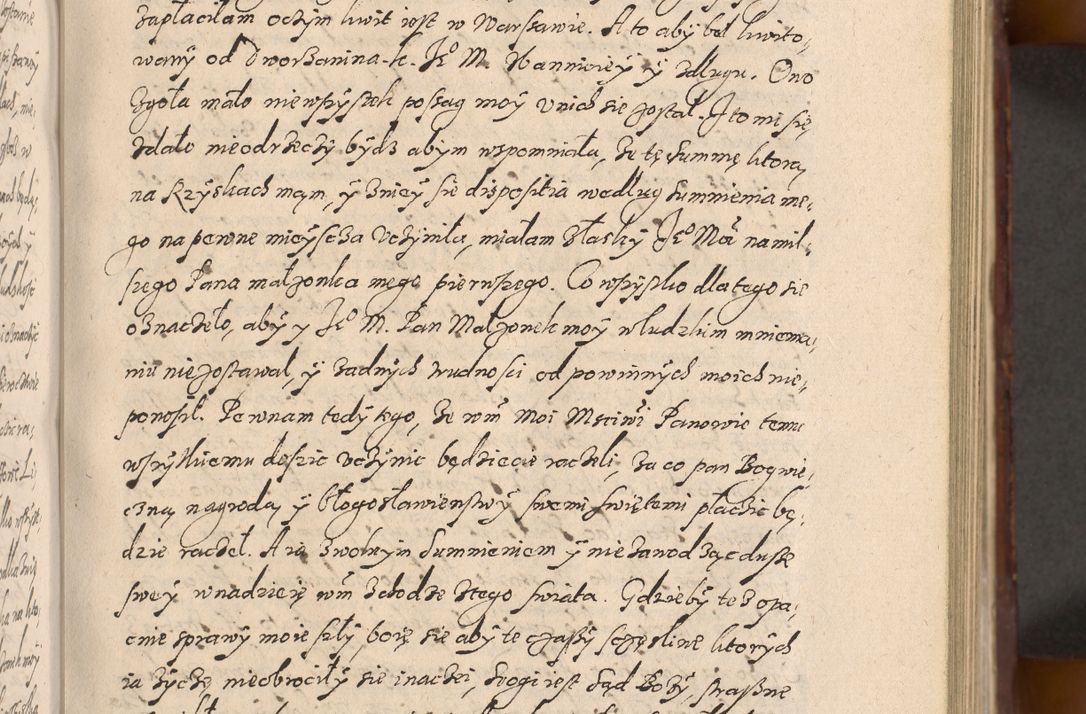 zapłaciłam oczym kwit iest w Warszawie. A to aby bel kwito,
wany od Dworzanina K. Je⁰ M. y zdługu. Ono
zgoła mało niewszystek posag moy vnich sie został. J to mi się,
zdało nieodrzeczy bydz abym wspomniała, że tę summę ktorą
na Krzyskach mam, y zniey sie dispositia według sumnienia me,
go na pewne mieysca vczyniła, miałam złasky Je⁰ Mći namil,
szego Pana małzonka mego pierwszego. Co wszystko dla tego sie
oznaczeło, aby y Je⁰ M. Pan Małzonek moy w ludzkim mniema,
niu nie zostawał, y zadnych trudnosci od powinnych moich nie,
ponosił. Pewnam tedy tego, że wm̃ Moi Msciwi Panowie temu
wszytkiemu dosyc vczynic będziecie raczeli, za co pan Bog wie,
czną nagrodą y błogosławienstwy swemi swiętemi płacic bę,
dzie raczeł. A ia zwolnym sumnieniem y nie zawodząc dusze
swey wnadzieię wm̃ schodze ztego swiata. Gdzieby tez opa,
cnie sprawy moie szły, boię sie aby te czasy scżęsliwe ktorych
ia życzę, nieobrociły sie inaczei, srogi iest sąd Boży, straszne